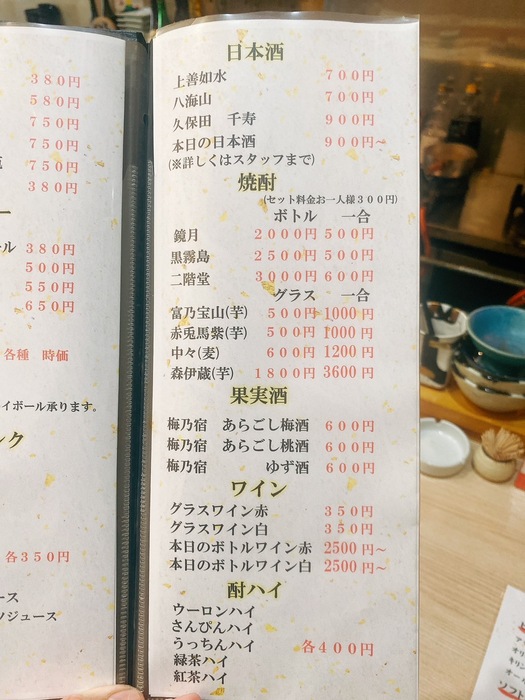 380円
580円
750円
750円
750円
380円
ール 380円
500円
550円
650円
各種 時価
イボール承ります。
ンク
各350円
ース
ジュース
日本酒
上善如水 700円
八海山 700円
久保田 千寿 900円
本日の日本酒 900円~
(※詳しくはスタッフまで)
焼酎
(セット料金お一人様300円)
ボトル 一合
鏡月 2000円 500円
黒霧島 2500円 500円
二階堂 3000円 600円
グラス 一合
富乃宝山(芋) 500円 1000円
赤兎馬紫(芋) 500円 1000円
中々(麦) 600円 1200円
森伊蔵(芋) 1800円 3600円
果実酒
梅乃宿 あらごし梅酒 600円
梅乃宿 あらごし桃酒 600円
梅乃宿 ゆず酒 600円
ワイン
グラスワイン赤 350円
グラスワイン白 350円
本日のボトルワイン赤 2500円~
本日のボトルワイン白 2500円~
酎ハイ
ウーロンハイ
さんぴんハイ
うっちんハイ 各400円
緑茶ハイ
紅茶ハイ